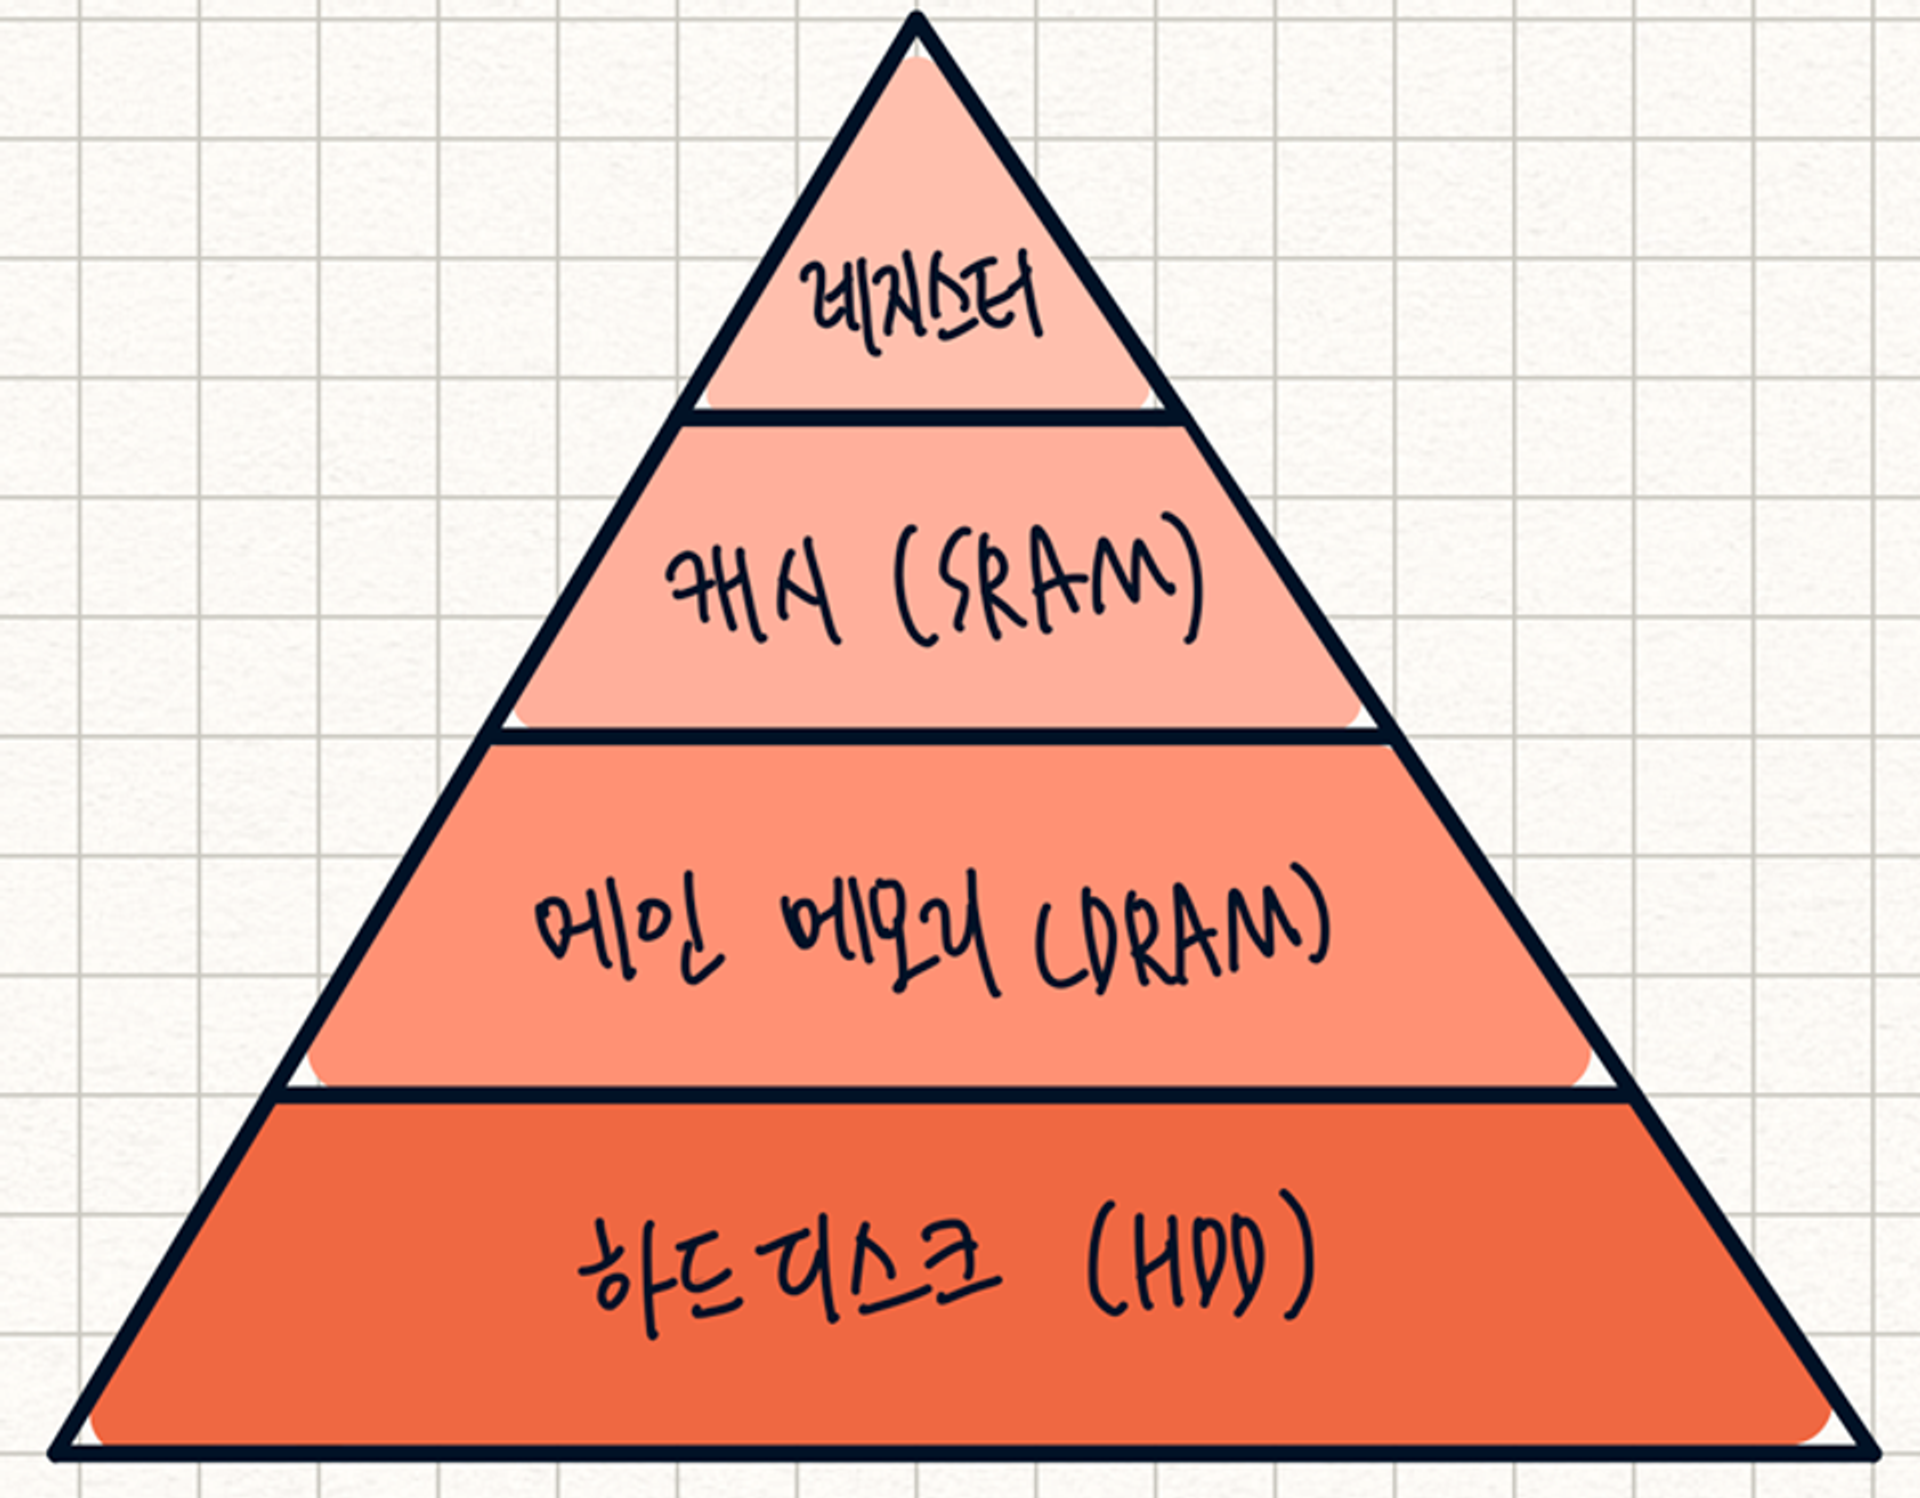 레지스터
캐시 (SRAM)
메인 메모리 (DRAM)
하드디스크 (HDD)